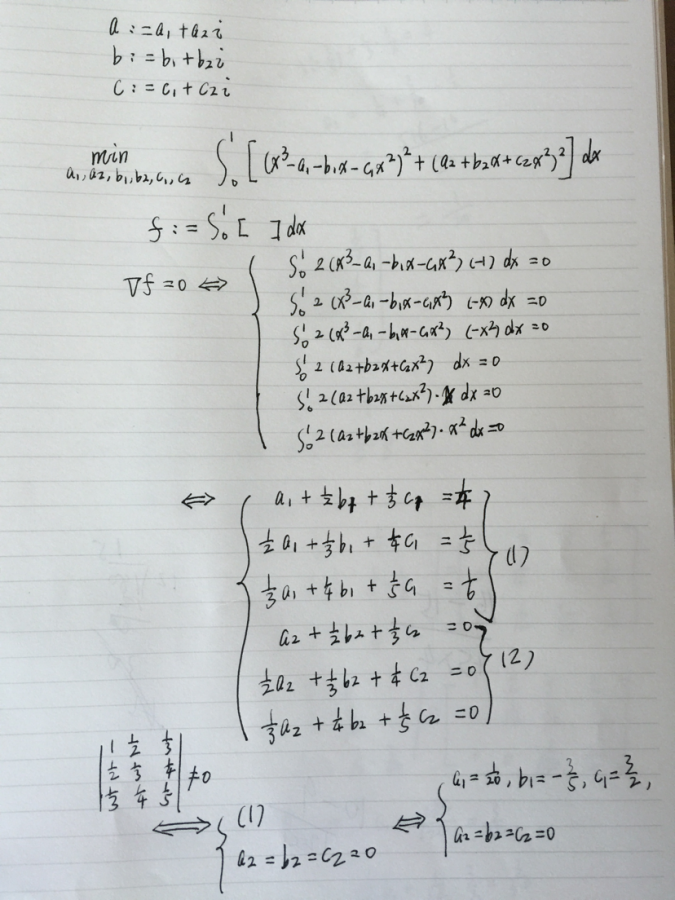 a := a₁ + a₂i
b := b₁ + b₂i
c := c₁ + c₂i
min ∫₀¹ [(x³-a₁-b₁x-c₁x²)² + (a₂+b₂x+c₂x²)²] dx
a₁,a₂,b₁,b₂,c₁,c₂
f := ∫₀¹ [ ] dx
∇f = 0 ⇔
∫₀¹ 2(x³-a₁-b₁x-c₁x²)(-1) dx = 0
∫₀¹ 2(x³-a₁-b₁x-c₁x²)(-x) dx = 0
∫₀¹ 2(x³-a₁-b₁x-c₁x²)(-x²) dx = 0
∫₀¹ 2(a₂+b₂x+c₂x²) dx = 0
∫₀¹ 2(a₂+b₂x+c₂x²)·x dx = 0
∫₀¹ 2(a₂+b₂x+c₂x²)·x² dx = 0
⇔
a₁ + 1/2 b₁ + 1/3 c₁ = 1/4
1/2 a₁ + 1/3 b₁ + 1/4 c₁ = 1/5
1/3 a₁ + 1/4 b₁ + 1/5 c₁ = 1/6
(1)
a₂ + 1/2 b₂ + 1/3 c₂ = 0
1/2 a₂ + 1/3 b₂ + 1/4 c₂ = 0
1/3 a₂ + 1/4 b₂ + 1/5 c₂ = 0
(2)
1 1/2 1/3
1/2 1/3 1/4 ≠0
1/3 1/4 1/5
⇔
(1)
a₂ = b₂ = c₂ = 0
⇔
a₁ = 1/20, b₁ = -3/5, c₁ = 3/2,
a₂ = b₂ = c₂ = 0